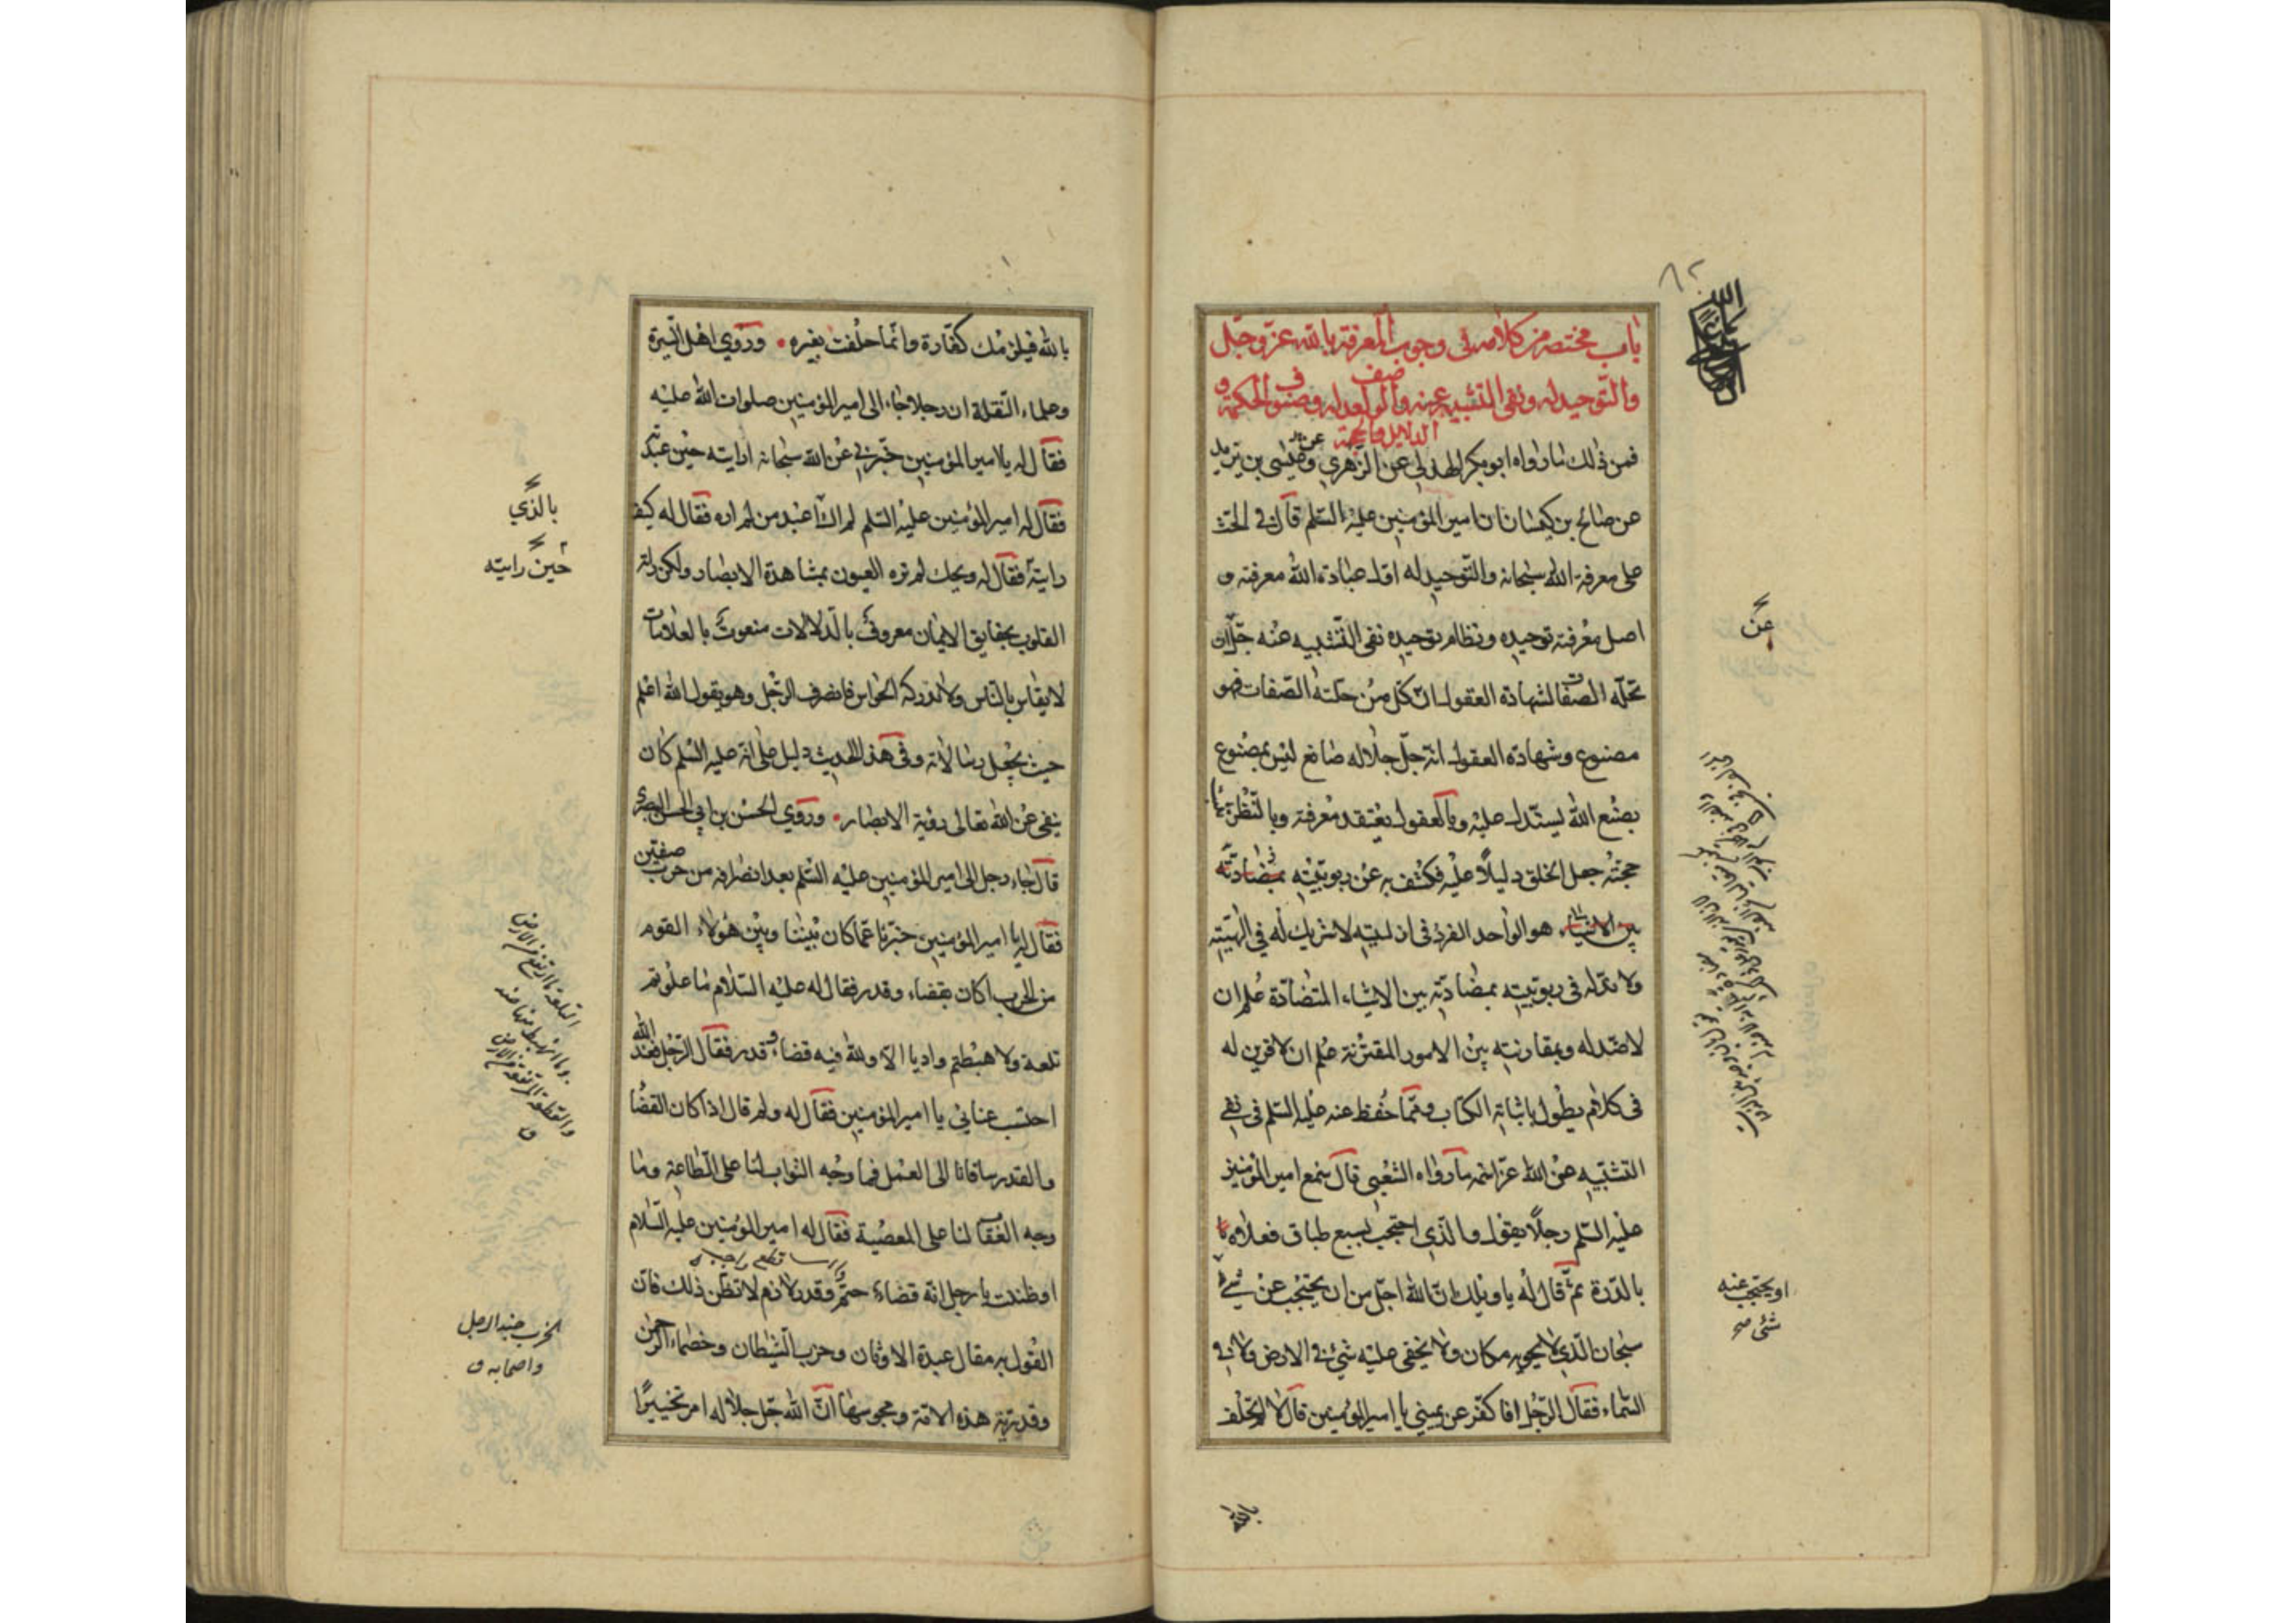 باب مختصر من كلامه في وجوب المعرفة بالله عز وجل
والتوحيد له ونفى التشبيه عنه والوصف لعدله وصنوف الحكمة و
الدلايل والحجة
فمن ذلك ما رواه ابو بكر الهذلي عن الزهري وعيسى بن يزيد
عن صالح بن كيسان ان امير المؤمنين عليه السلم قال في الحث
على معرفة الله سبحانه والتوحيد له اول عبادة الله معرفته و
اصل معرفته توحيده ونظام توحيده نفى التشبيه عنه جل ان
تحله الصفات لشهادة العقول ان كل من حلته الصفات فهو
مصنوع وشهادة العقول انه جل جلاله صانع ليس بمصنوع
بصنع الله يستدل عليه وبالعقول يعتقد معرفته وبالنظر
حجته جعل الخلق دليلا عليه فكشف به عن ربوبيته
هو الواحد الفرد في ازليته لا شريك له في الهيته
ولا ند له في ربوبيته بمضادته بين الاشياء المتضادة علم ان
لا ضد له وبمقارنته بين الامور المقترنة علم ان لا قرين له
في كلام يطول باثباته الكتاب ومما حفظ عنه عليه السلم في نفي
التشبيه عن الله عز اسمه ما رواه الشعبي قال سمع امير المؤمنين
عليه السلم رجلا يقول والذي احتجب بسبع طباق فعلاه
بالدرة ثم قال له يا ويلك ان الله اجل من ان يحتجب عن شيء
سبحان الذي لا يحويه مكان ولا يخفى عليه شيء في الارض ولا في
السماء فقال الرجل افاكفر عن يميني يا امير المؤمنين قال لا لم تحلف
بالله
عن
او يحتجب عنه
شئ صح
بالله فيلزمك كفارة وانما حلفت بغيره وروي اهل السيرة
وعلماء النقلة ان رجلا جاء الى امير المؤمنين صلوات الله عليه
فقال له يا امير المؤمنين خبرني عن الله سبحانه ارايته حين عبدته
فقال له امير المؤمنين عليه السلم لم اك اعبد من لم اره فقال له كيف
رايته فقال له ويحك لم تره العيون بمشاهدة الابصار ولكن راته
القلوب بحقايق الايمان معروف بالدلالات منعوت بالعلامات
لا يقاس بالناس ولا تدركه الحواس فانصرف الرجل وهو يقول الله اعلم
حيث يجعل رسالاته وفي هذا الحديث دليل على انه عليه السلم كان
ينفي عن الله تعالى رؤية الابصار وروي الحسن بن ابي الحسن البصري
قال جاء رجل الى امير المؤمنين عليه السلم بعد انصرافه من حرب صفين
فقال له يا امير المؤمنين خبرنا عما كان بيننا وبين هؤلاء القوم
من الحرب اكان بقضاء وقدر فقال له عليه السلام ما علوتم
تلعة ولا هبطتم واديا الا ولله فيه قضاء وقدر فقال الرجل فعند الله
احتسب عنائي يا امير المؤمنين فقال له ولم قال اذا كان القضا
والقدر ساقانا الى العمل فما وجه الثواب لنا على الطاعة وما
وجه العقاب لنا على المعصية فقال له امير المؤمنين عليه السلام
اوظننت يا رجل انه قضاء حتم وقدر لازم لا تظن ذلك فان
القول به مقال عبدة الاوثان وحزب الشيطان وخصماء الرحمن
وقدرية هذه الامة ومجوسها ان الله جل جلاله امر تخييرا
بالذي
حين رايته
التلعة ما ارتفع من الارض
وما انهبط منها ضد
الحزب جند الرجل
واصحابه ق